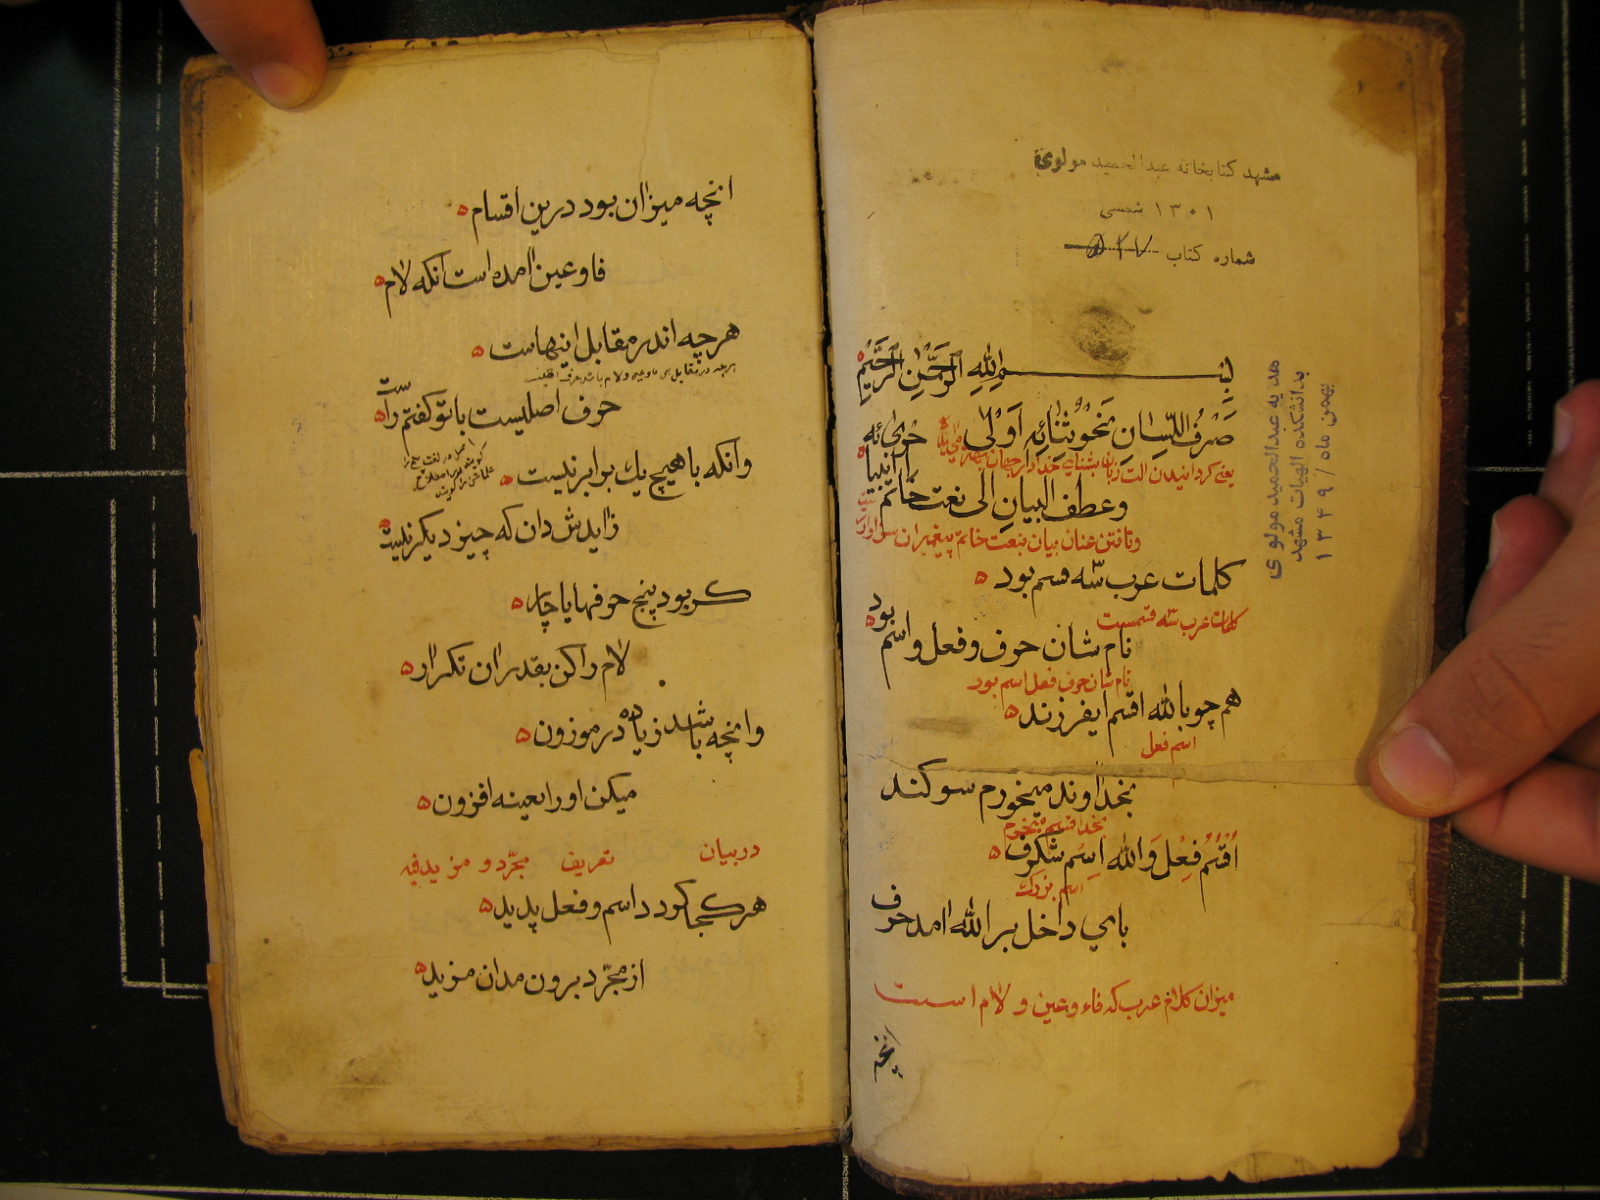 مشهد کتابخانه عبدالحمید مولوی
۱۳۰۱ شمسی
شماره کتاب ۵۲۷
هدیه عبدالحمید مولوی
بدانشکده الهیات مشهد
بهمن ماه / ۱۳۴۹
بسم الله الرحمن الرحیم
صرف اللسان نحو ثنائه اولی
یعنی کردانیدن الت زبان بثنای خدا
وعطف البیان الی نعت خاتم انبیا
وتافتن عنان بیان بنعت خاتم پیغمبران سزاوار
کلمات عرب سه قسم بود
کلمات عرب سه قسمست
نام شان حرف وفعل واسم بود
نام شان حرف فعل اسم بود
هم چو بالله اقسم ای فرزند
اسم فعل
بخداوند میخورم سوکند
بخدا قسم میخورم
اقسم فعل والله اسم شکرف
اسم بزرک
بای داخل بر الله امد حرف
میزان کلام عرب که فاء وعین و لام است
انچه
انچه میزان بود درین اقسام
فا وعین امده است انکه لام
هرچه اندر مقابل اینهاست
هرچه در مقابل فا وعین ولام باشد حرف اصلیست
حرف اصلیست با تو کفتم راست
وانکه با هیچ یک برابر نیست
زایدش دان که چیز دیکر نیست
کر بود پنج حرفها یا چار
لام را کن بقدر ان تکرار
وانچه باشد زیاده در موزون
میکن او را بعینه افزون
در بیان تعریف مجرّد و مزید فیه
هر کجا کردد اسم وفعل پدید
از مجرّد برون مدان مزید